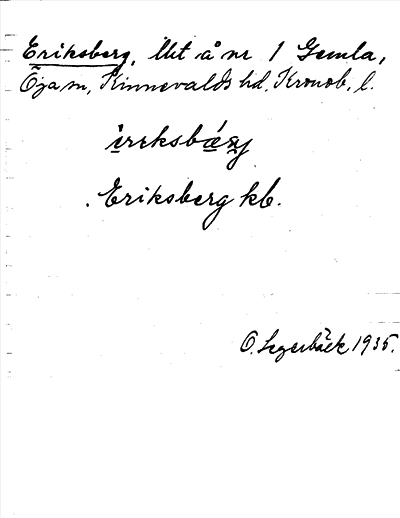 Eriksberg, lht å nr 1 Gemla,
Öja sn, Kinnevalds hd, Kronob. l.
Eriksberg kb.
O. Segerbäck 1935.